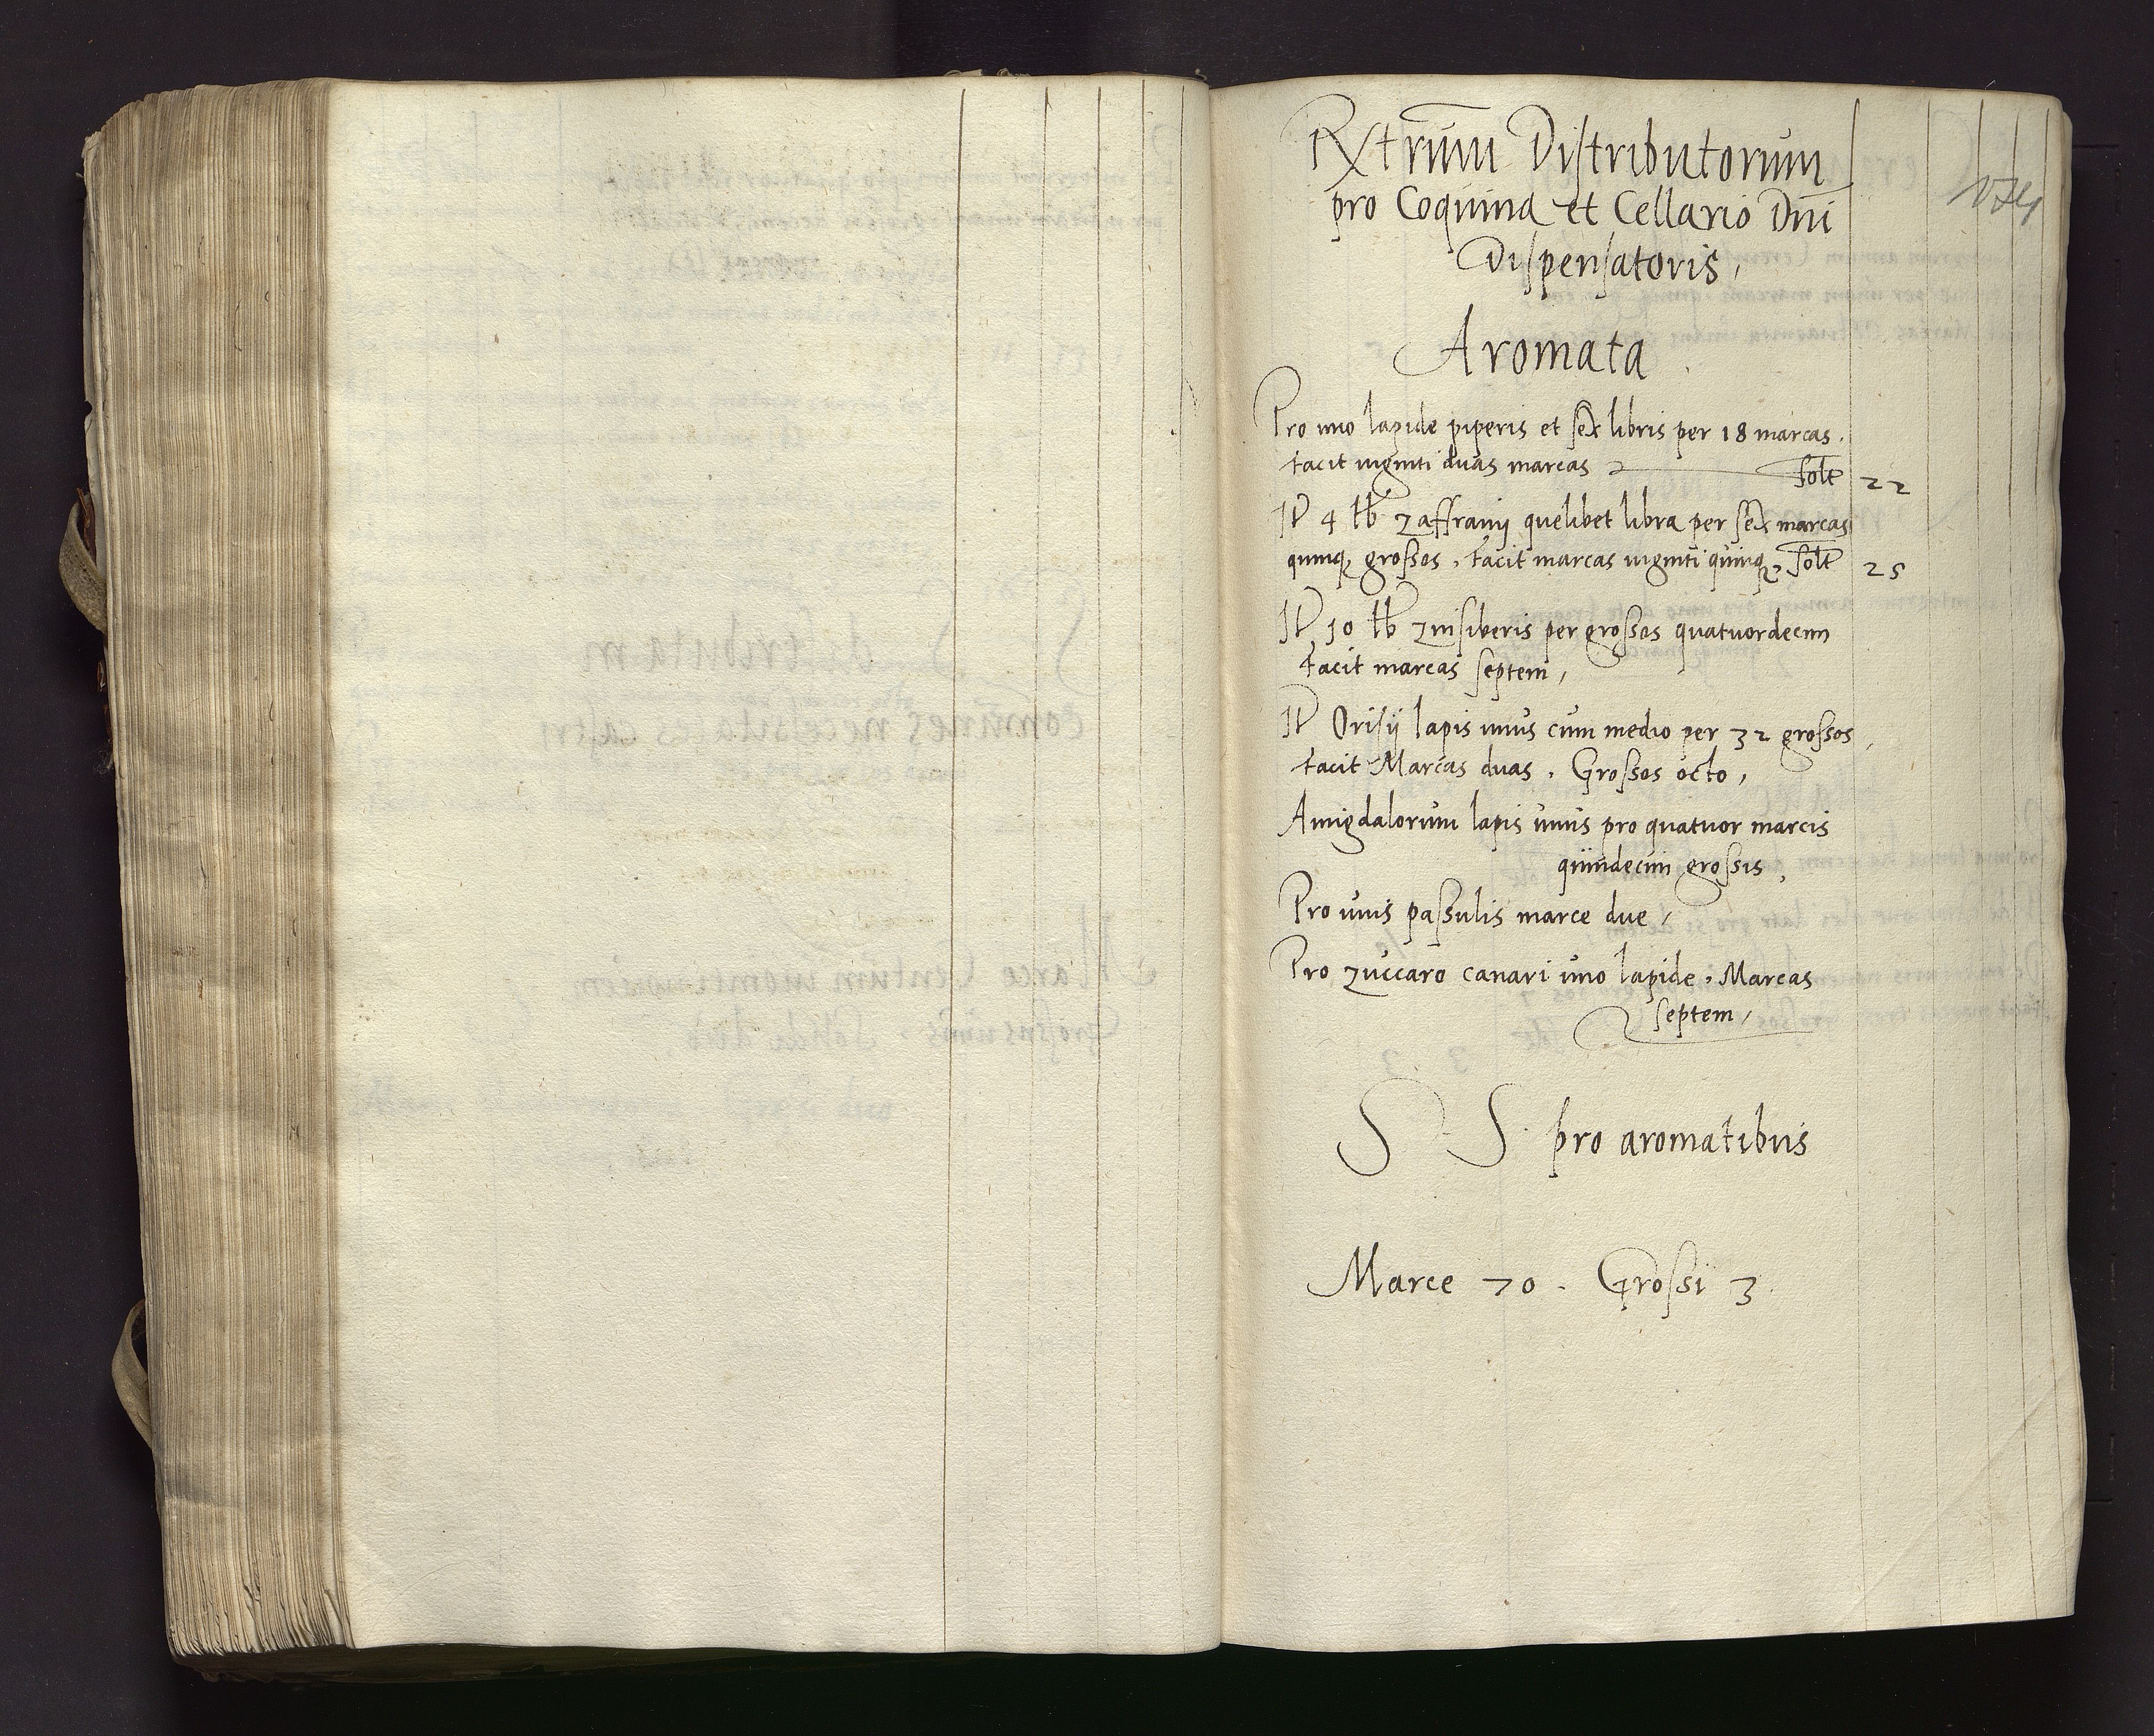 Rxtrum Distributorum
pro Coquina et Cellario Dni
Dispensatoris,
Aromata
Pro uno lapide piperis et sex libris per 18 marcas.
facit viginti duas marcas solt 22
It 4 lb zaffranij quelibet libra per sex marcas
quinq grossos, facit marcas viginti quinq, solt 25
It 10 lb zinsiberis per grossos quatuordecim
facit marcas septem,
It Orisij lapis unus cum medio per 32 grossos,
facit Marcas duas, Grossos octo,
Amigdalorum lapis unus pro quatuor marcis
quindecim grossis,
Pro uvis passulis marce due,
Pro zuccaro canari uno lapide, Marcas
septem,
S S pro aromatibus
Marce 70. Grossi 3